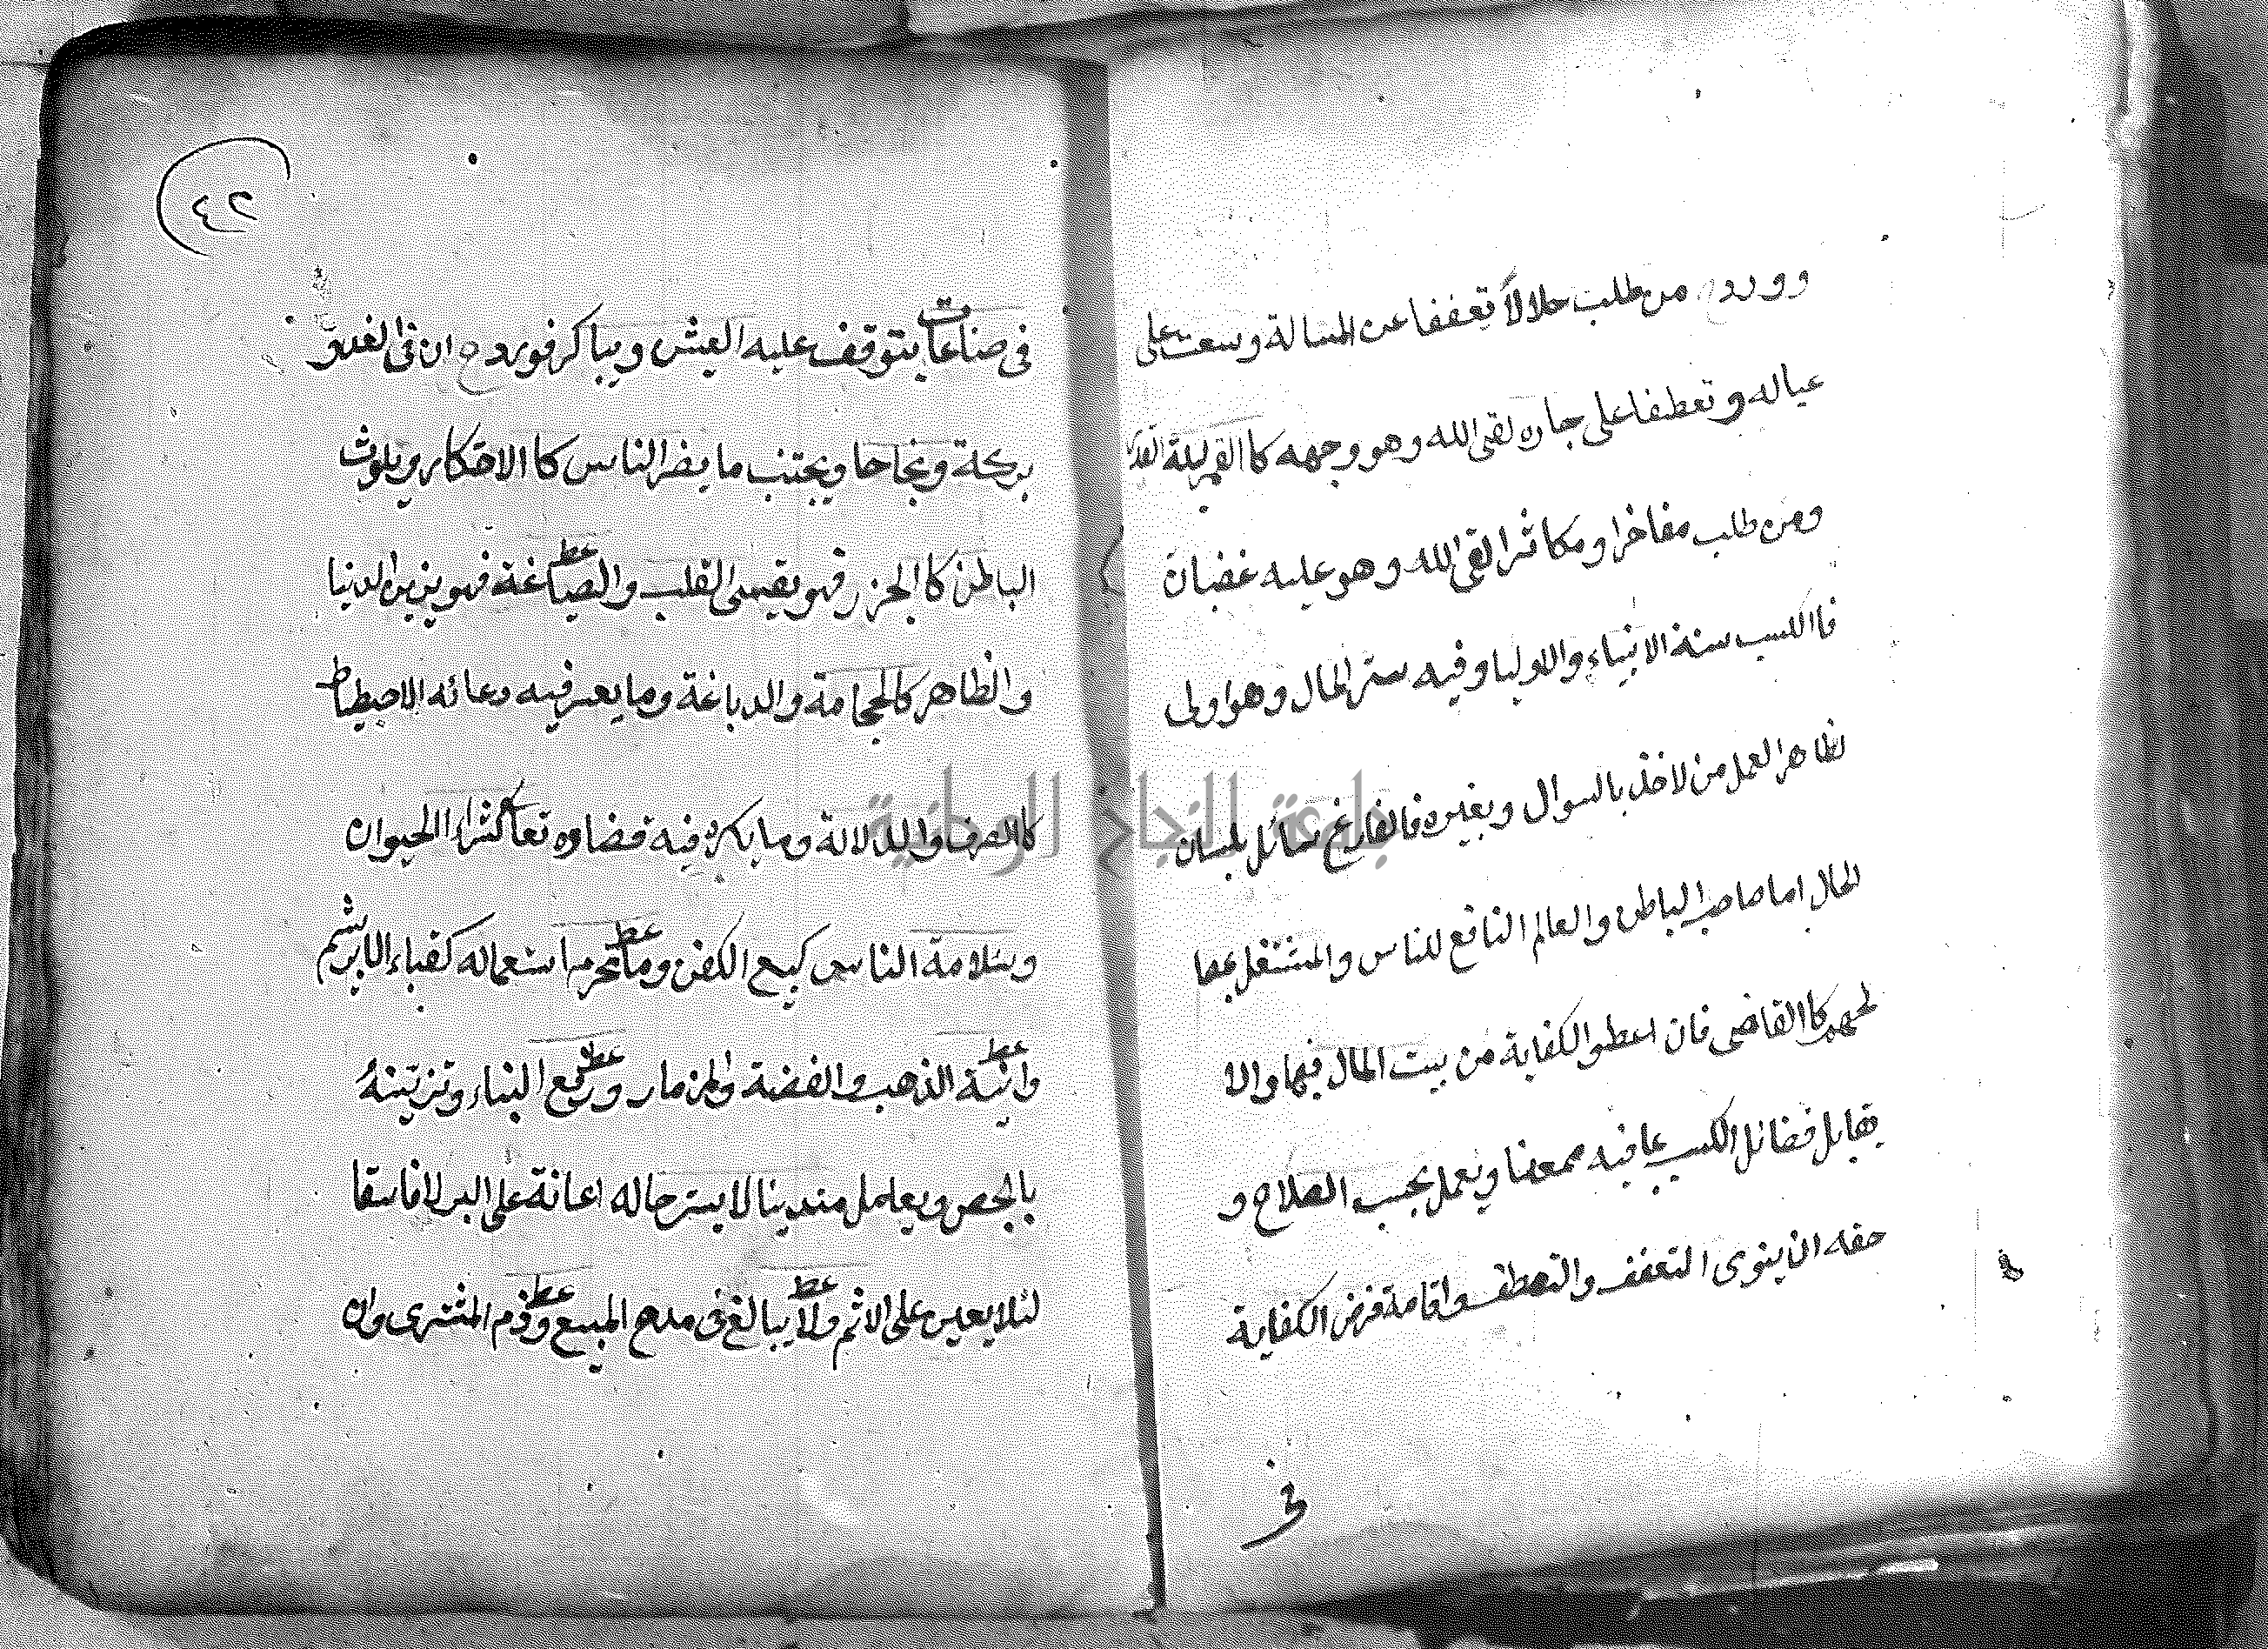 وورد من طلب حلالاً تعففا عن المسالة وسعت على
عياله وتعطفا على جاره لقى الله وهو وجهه كاالقمر ليلة القدر
ومن طلب مفاخرا ومكاثرا لقى الله وهو عليه غضبان
فاالكسب سنة الانبياء والاوليا وفيه ستر المال وهو اولى
لظاهر العمل من لاخذ بالسوال وبغيره فالفارغ سائل بلسان
الحال اما صاحب الباطن والعالم النافع للناس والمشتغل بمصا
لحهم كاالقاضى فان اعطو الكفاية من بيت المال فبها والا
يقابل فضائل الكسب بما فيه ويعمل بحسب الصلاح و
حقه ان ينوى التعفف والتعطف واقامة فرض الكفاية
فى
٤٢
فى صناعات يتوقف عليه العيش ويباكر فورد ان فى الغدو
بركة ونجاحا ويجتنب ما يضر الناس كاالاحتكار ويلوث
الباطن كاالجزر فهو يقسى القلب والصياغة فهو يزين الدنيا
والظاهر كالحجامة والدباغة وما يعسر فيه رعائه الاحتياط
كاالصرف والدلالة وما يكره فيه قضاؤه تعا كشراء الحيوان
وسلامة الناس كبيع الكفن وما تحرم استعماله كقباء الابريشم
وانية الذهب والفضة والمزمار ورفع البناء وتزيينه
بالجص ويعامل متدينا لا يستر حاله اعانة على البر لا فاسقا
لئلا يعين على الاثم ولا يبالغ فى مدح المبيع وذم المشترى وان
جامعة النجاح الوطنية